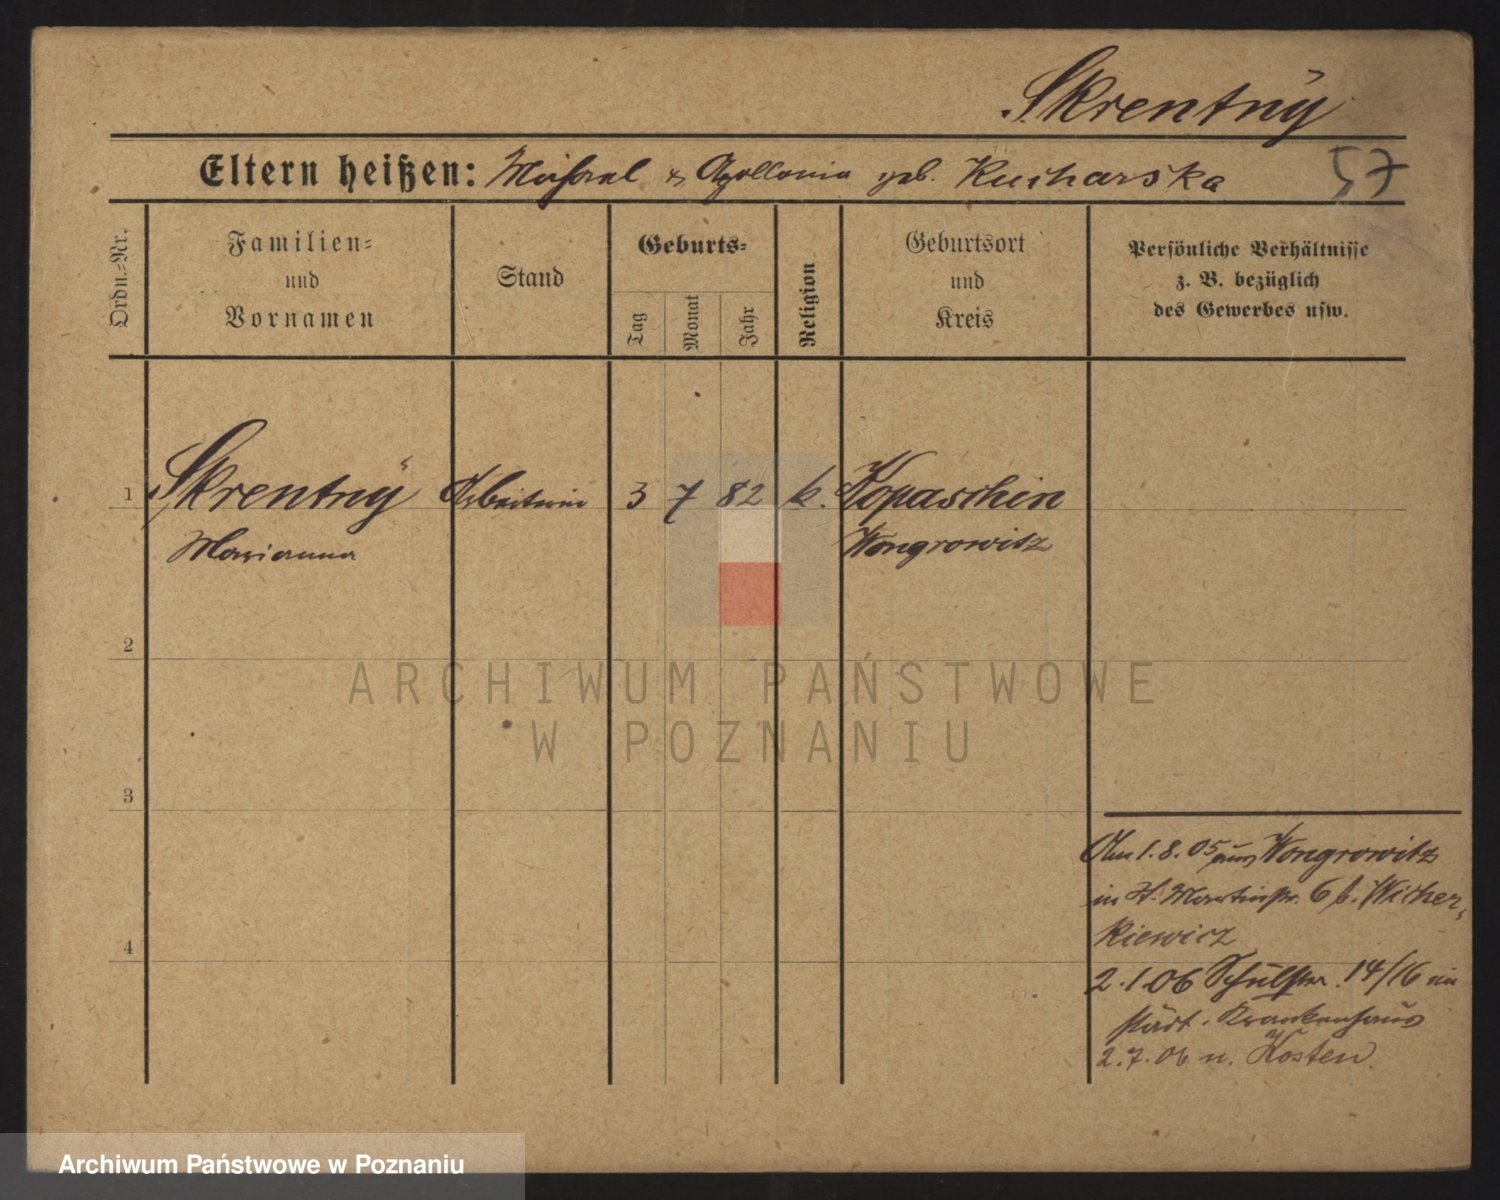 Skrentny
Eltern heißen: Michael & Apollonia geb. Kucharska 57
Ordn.-Nr.
Familien-
und
Vornamen
Stand
Geburts-
Tag
Monat
Jahr
Religion
Geburtsort
und
Kreis
Persönliche Verhältnisse
z. B. bezüglich
des Gewerbes usw.
1 Skrentny Arbeiterin 3 7 82 k. Kopaschin
Marianna Wongrowitz
2
3
4
Am 1.8.05 aus Wongrowitz
in St. Martinstr. 6 b. Wicher-
kiewicz
2.1.06 Schulstr. 14/16 im
städt. Krankenhaus
2.7.06 n. Kosten
ARCHIWUM PAŃSTWOWE
W POZNANIU
Archiwum Państwowe w Poznaniu